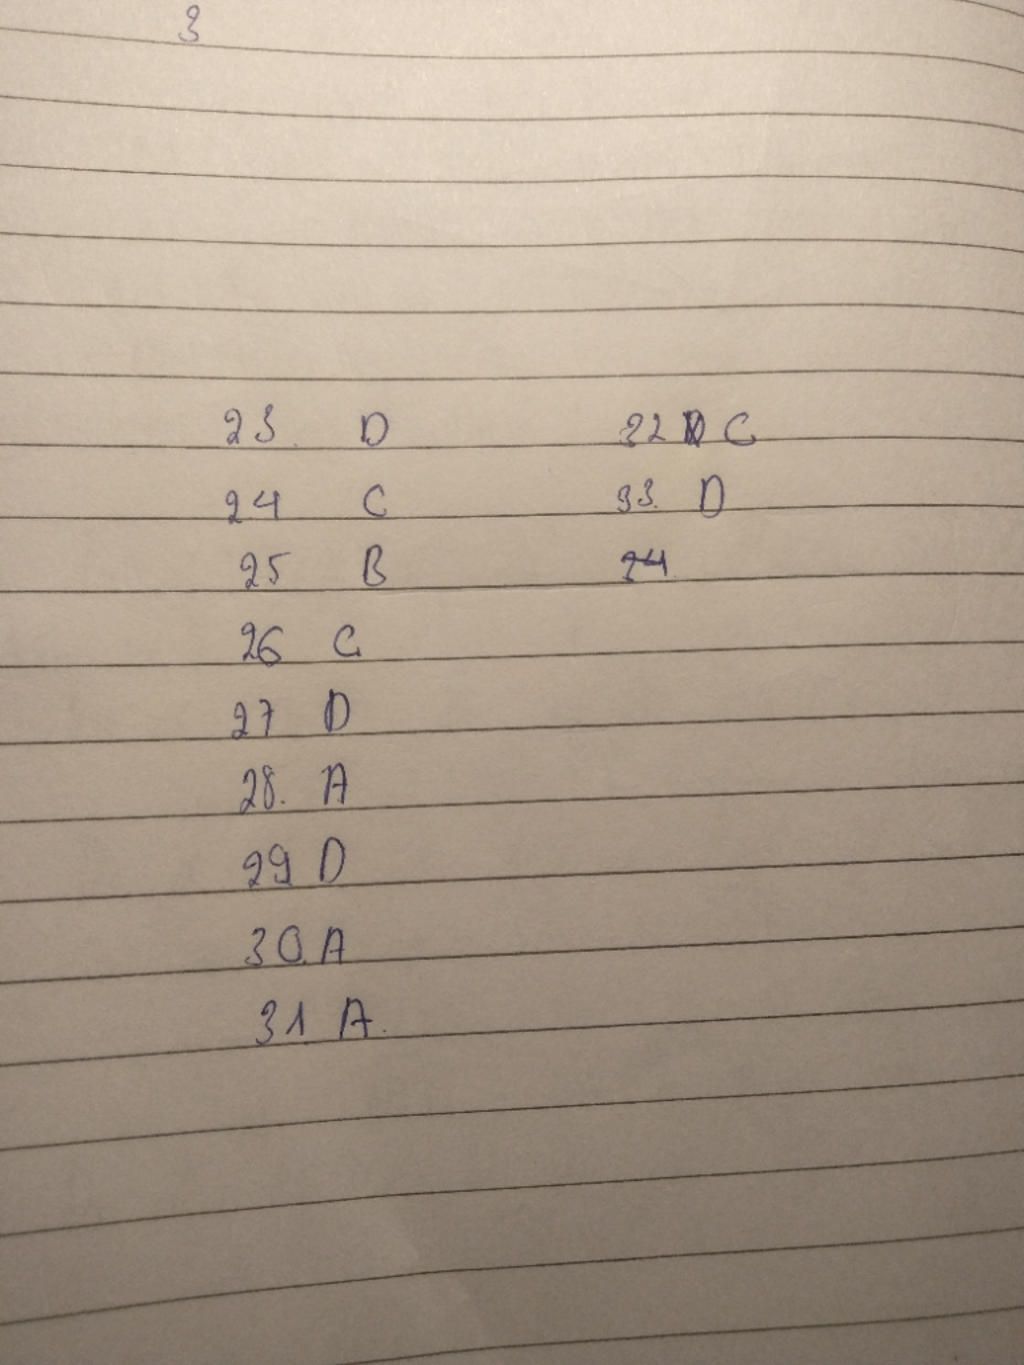 3
23. D
24 C
25 B
26 C
27 D
28. A
29 D
30. A
31 A.
32 C
33. D